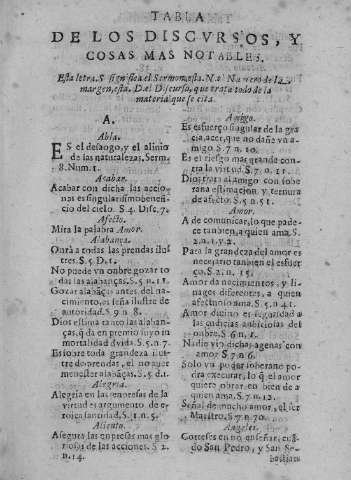 TABLA
DE LOS DISCVRSOS, Y
COSAS MAS NOTABLES.
Esta letra. S significa el Sermon, esta. N. Numero de la
margen, esta. D. el Discurso, que trata todo de la
materia que se cita.
A.
Abla.
ES el desaogo, y el alinio
de las naturalezas, Serm.
8. Num. 1.
Acabar.
Acabar con dicha las accio
nes es singularissimo benefi-
cio del cielo. S. 4. Disc. 7.
Afecto.
Mira la palabra Amor.
Alabança.
Onrà a todas las prendas ilus
tres. S. 5. D. 1.
No puede vn onbre gozar to
das las alabanças, S. 5. n. 18.
Gozar alabãças antes del na-
cimiento, es seña ilustre de
autoridad. S. 9 n. 8.
Dios estima tanto las alaban-
ças, q̃ da en premio suyo in
mortalidad d vida. S. 5. n. 7.
Es sobre toda grandeza ilus-
tre de prendas, el no auer
menester alabãças, S. 5. d. 1.
Alegria.
Alegria en las enpresas de la
virtud es argumento de e-
roica santidad. S. 1. n. 5.
Aliento.
Asegura las enpresas mas glo
riosas de las acciones. S. 2
n. 14.
Amigo.
Es esfuerço singular de la gra
cia, acer, que no dañe vn a-
migo. S. 7. n. 10.
Es el riesgo mas grande con-
tra la virtud. S. 7. n. 11.
Dios trata al amigo con sobe
rana estimacion, y ternura
de afecto. S. 5. n. 51.
Amor.
A de comunicar, lo que pade-
ce tanbien, a quien ama. S.
2. n. 1. y 2.
Para la grandeza del amor es
necesario tanbien el esfuer
ço. S. 2. n. 15.
Amor da nacimientos, y li
nages diferentes, a quien
afectuoso ama. S. n. 41.
Amor diuino es seguridad a
las cudicias anbiciosas del
onbre. S. 6. n. 1.
Nadie viò dichas agenas con
amor S. 7 n. 6.
Solo vn poder soberano po
dra recatar, lo q̃ el amor
quiere obrar, en bien de a
quien ama. S. 7. n. 12.
Señal de mucho amor, el ser
Maestro. S. 7. n. 70.
Angeles.
Corteses en no enseñar, cuã-
do San Pedro, y San Se-